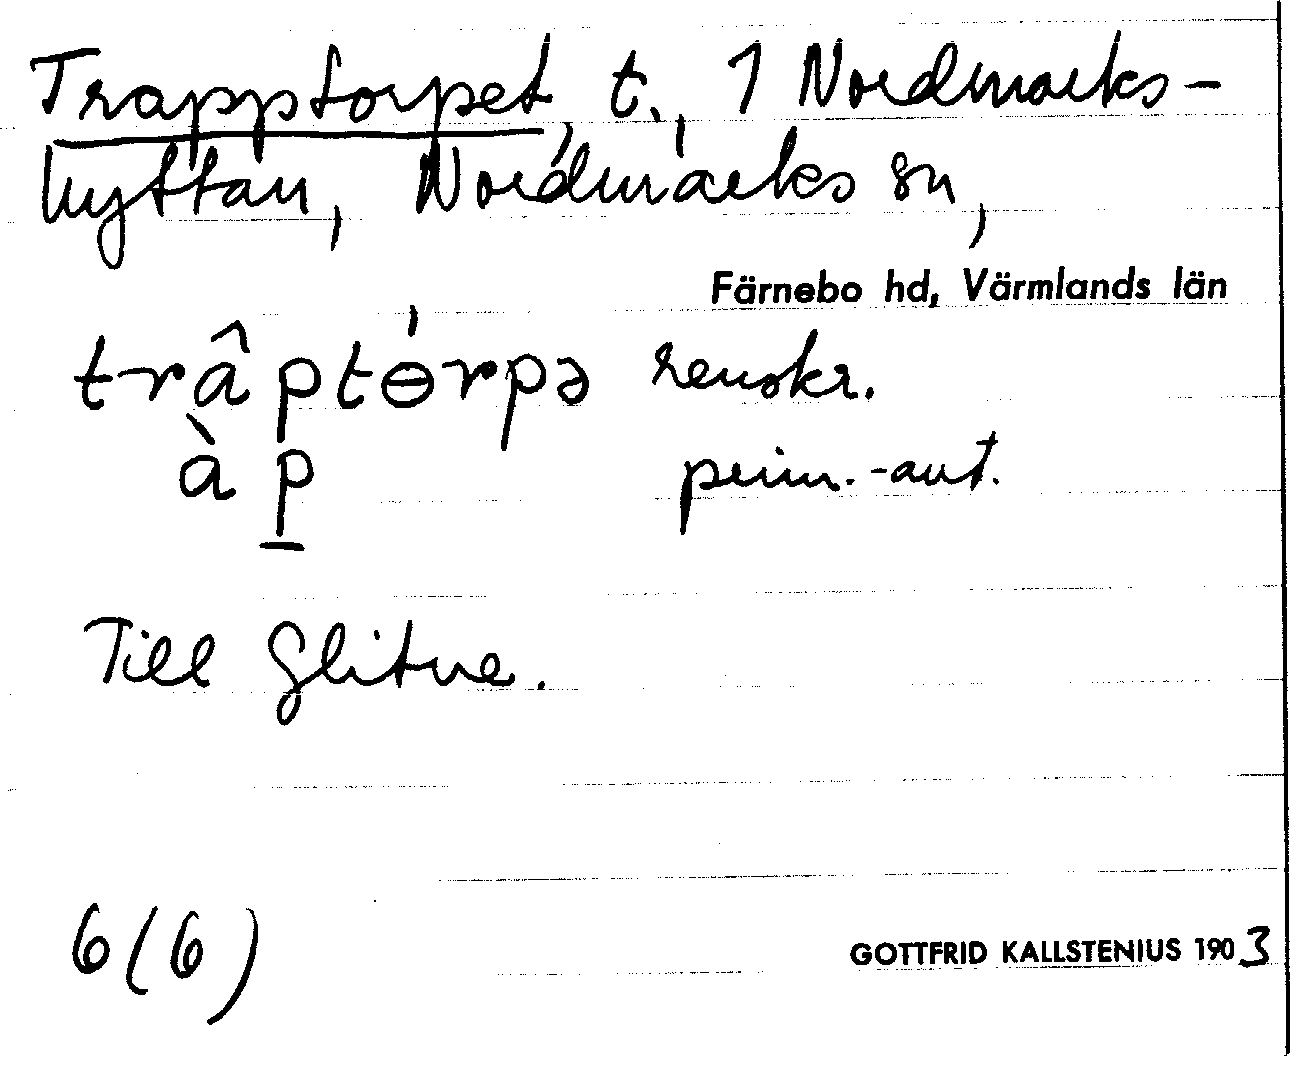 Trapptorpet, t., 1 Nordmarks-
hyttan, Nordmarks sn,
Färnebo hd, Värmlands län
trâptɵ́rpə renskr.
à p prim.-ant.
Till Glitne.
6 (6)
GOTTFRID KALLSTENIUS 1903